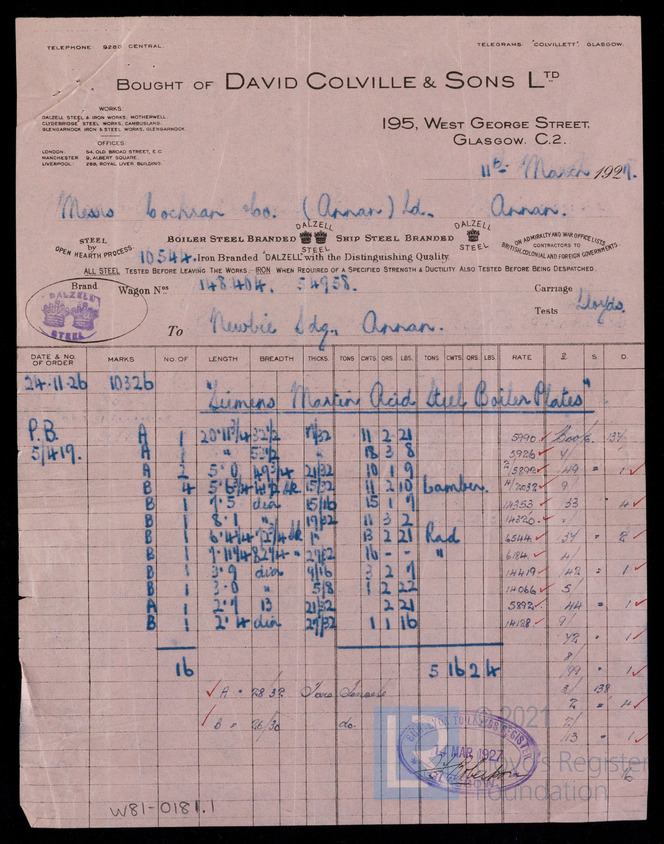 TELEPHONE 9280 CENTRAL.
TELEGRAMS "COLVILLETT" GLASGOW.
BOUGHT OF DAVID COLVILLE & SONS LTD
WORKS:
DALZELL STEEL & IRON WORKS, MOTHERWELL
CLYDEBRIDGE STEEL WORKS, CAMBUSLANG.
GLENGARNOCK IRON & STEEL WORKS, GLENGARNOCK.
OFFICES:
LONDON: 54, OLD BROAD STREET, E.C.
MANCHESTER 9, ALBERT SQUARE.
LIVERPOOL: 288, ROYAL LIVER BUILDING.
195, WEST GEORGE STREET,
GLASGOW. C.2.
11th March 1927.
Messrs Cochran & Co. (Annan) Ld., Annan.
STEEL by OPEN HEARTH PROCESS.
BOILER STEEL BRANDED DALZELL STEEL SHIP STEEL BRANDED DALZELL STEEL
ON ADMIRALTY AND WAR OFFICE LISTS CONTRACTORS TO BRITISH, COLONIAL AND FOREIGN GOVERNMENTS.
10544. Iron Branded "DALZELL" with the Distinguishing Quality.
ALL STEEL TESTED BEFORE LEAVING THE WORKS. IRON WHEN REQUIRED OF A SPECIFIED STRENGTH & DUCTILITY ALSO TESTED BEFORE BEING DESPATCHED.
Brand Wagon Nos 148404. 54958. Carriage
DALZELL STEEL
Tests Lloyds.
To Newbie Sdg., Annan.
DATE & NO. OF ORDER MARKS NO. OF LENGTH BREADTH THICKS. TONS CWTS. QRS. LBS. TONS CWTS. QRS. LBS. RATE £ S. D.
24.11.26 10326 "Siemens Martin Acid Steel Boiler Plates"
P.B. A 1 11 2 21 5990
5/419. A 1 " 18 3 8 5926
A 2 5.0 21/32 10 1 9 49 " 1
B 4 15/32 11 2 10 Camber. 9/
B 1 7.5 dia 15/16 15 1 9 14353 33 " 4
B 1 8.1 " 19/32 11 3 2 14320
B 1 1" 13 2 21 Rad 6544 34 " 2
B 1 29/32 16 - - " 6184
B 1 3.9 dia 9/16 3 2 7 14419 42 " 1
B 1 3.0 " 5/8 1 2 22 14066 5/
A 1 2.7 13 21/32 2 21 5892 44 " 1
B 1 2.4 dia 29/32 1 1 16 14128 9/
42 " 1
8/
16 5 16 2 4 199 " 1
A = 28/32 Tons Tensile 138
2 " 4
B = 26/30 do. 2/
13 " 1
16
14 MAR 1927
© 2021
LR Lloyd's Register
Foundation
W81-0181.1